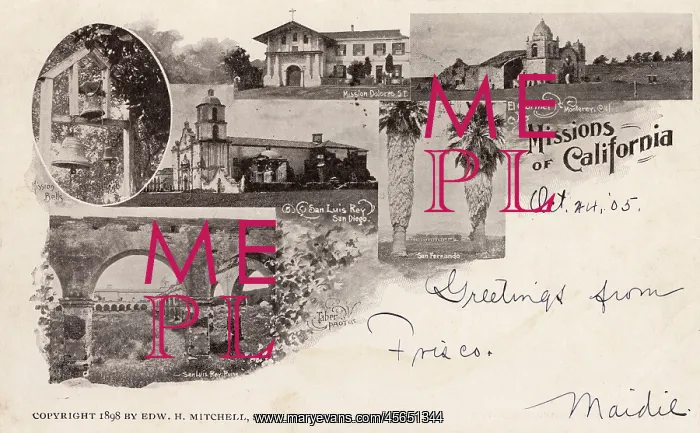 Mission Dolores S.F.
El Carmel Monterey, Cal.
Missions
of California
Mission
Bells
San Luis Rey
San Diego.
San Fernando
Oct. 24, '05.
Greetings from
Frisco.
Maidie.
Taber
Photos
San Luis Rey Ruins
ME
PL
ME
PL
COPYRIGHT 1898 BY EDW. H. MITCHELL,
www.maryevans.com/45651344